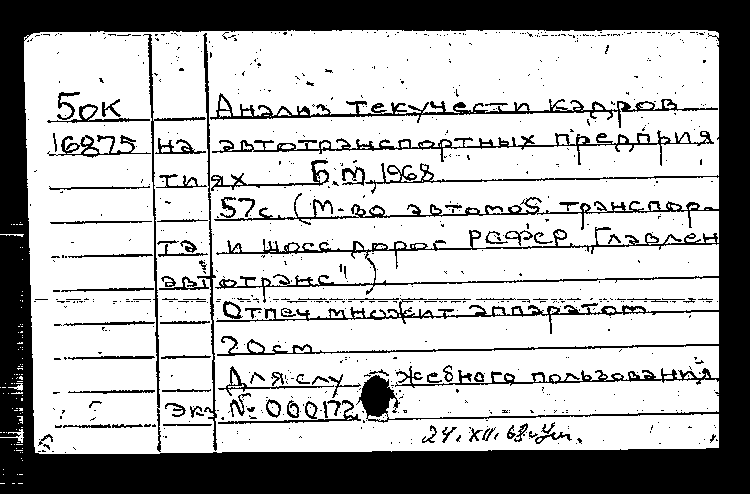 5ок Анализ текучести кадров
16875 на автотранспортных предприя
тиях. Б.м., 1968.
57с. (М-во автомоб. транспор-
та и шосс. дорог РСФСР. „Главлен
автотранс").
Отпеч. множит. аппаратом.
20см.
Для служебного пользования
экз. № 000172.
24.XII.68